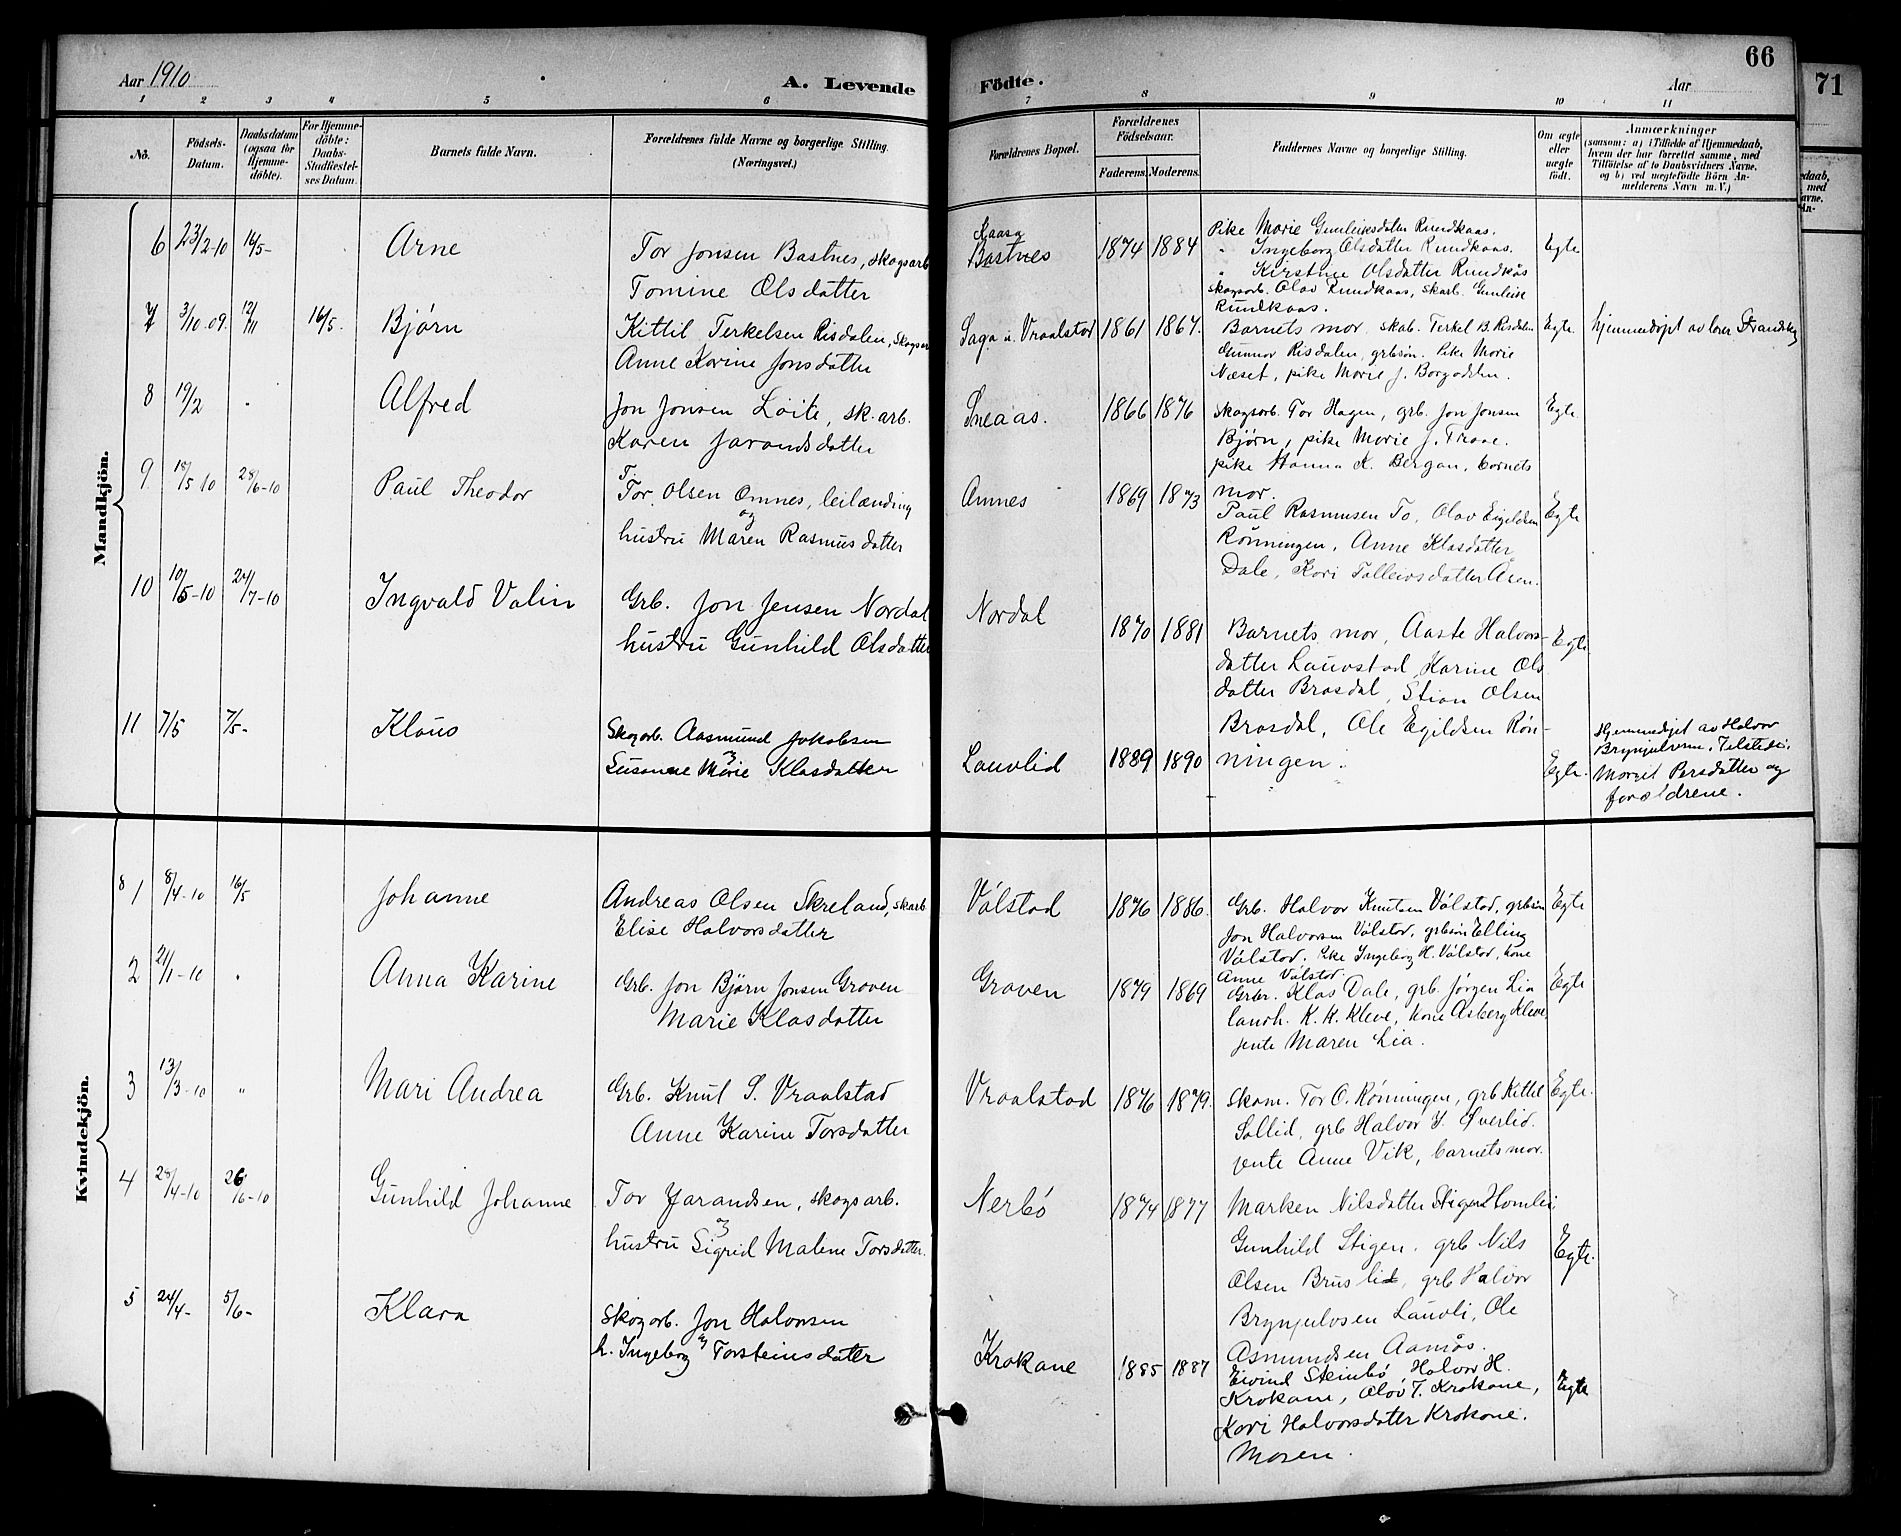 66
71
Aar 1910
A. Levende Födte.
Aar
1 2 3 4 5 6 7 8 9 10 11
No.
Födsels-
Datum.
Daabsdatum
(ogsaa for
Hjemme-
döbte).
For Hjemme-
döbte:
Daabs-
Stadfæstel-
ses Datum.
Barnets fulde Navn.
Forældrenes fulde Navne og borgerlige Stilling.
(Næringsvei.)
Forældrenes Bopæl.
Forældrenes
Födselsaar.
Faderens. Moderens.
Faddernes Navne og borgerlige Stilling.
Om ægte
eller
uægte
födt.
Anmærkninger
(saasom: a) i Tilfælde af Hjemmedaab,
hvem der har forrettet samme, med
Tilföielse af to Daabsvidners Navne,
og b) ved uægtefödte Börn An-
melderens Navn m. V.)
Mandkjön.
6 23/2-10 16/5- Arne
Tor Jonsen Bastnes, skogsarb
Tomine Olsdatter
Kaasa
Bastnes 1874 1884
Pike Marie Gunleiksdatter Rundkaas.
" Ingeborg Olsdatter Rundkaas.
" Kirstine Olsdatter Rundkås
skogsarb. Olav Rundkaas, skarb. Gunleik
Rundkaas.
Egte
7 3/10.09. 12/11 16/5. Bjørn
Kittil Terkelsen Risdalen, skogsar
Anne Karine Jonsdatter
Saga u. Vraalstad 1861 1867.
Barnets mor, skab. Terkel B. Risdalen
Gunnar Risdalen, grbsøn. Pike Marie
Næset, pike Marie J. Borgodalen.
Egte.
hjemmedøpt av lærer Strandskog
8 19/2 " Alfred
Jon Jonsen Løite, sk. arb.
Karen Jarandsdatter
Sneaas. 1866 1876
Skogsarb. Tor Hagen, grb. Jon Jonsen
Bjørn, pike Marie J. Traae.
pike Hanna K. Bergan, barnets
mor.
Egte
9 18/5 10 28/6-10 Paul Theodor
Tor Olsen Omnes, leilænding
og
hustru Maren Rasmusdatter
Omnes 1869 1873
Paul Rasmusen To, Olav Eigildsen
Rønningen, Anne Klasdatter
Dale, Kari Talleivsdatter Aaen.
Egte
10 10/5-10 24/7-10 Ingvald Valin
Grb. Jon Jensen Nordal
hustru Gunhild Olsdatter
Nordal 1870 1881
Barnets mor, Aaste Halvors-
datter Lauvstad, Harine Ols
datter Brasdal, Stian Olsen
Brasdal, Ole Egildsen Røn-
ningen.
Egte
11 7/5 7/5- Klaus
Skogarb. Aasmund Jakobsen
og
Susanne Marie Klasdatter
Lauvlid 1889 1890
Egte.
Hjemmedøpt av Halvor
Brynjulvsen,
Margit Persdatter og
forældrene.
Kvindekjön.
8 1 8/4-10 16/5 Johanne
Andreas Olsen Skreland, skarb
Elise Halvorsdatter
Vålstad 1876 1886.
Grb. Halvor Knutsen Vålstad, grbsøn
Jon Halvorsen Vålstad, grbsøn Elling
Vålstad. Pike Ingeborg H. Vålstad, kone
Anne Vålstad.
Egte
2 21/1-10 " Anna Karine
Grb. Jon Bjørn Jonsen Graven
Marie Klasdatter
Graven 1879 1869
Grbr. Klas Dale, grb. Jørgen Lia
landh. K. K. Kleve, kone Asberg Kleve,
jente Maren Lia.
Egte
3 13/3-10 " Mari Andrea
Grb. Knut S. Vraalstad
Anne Karine Torsdatter
Vraalstad 1876 1879.
Skom. Tor O. Rønningen, grb Kittel
Sollid, grb Halvor Y. Øverlid.
jente Anne Vik, barnets mor.
Egte.
4 28/4-10 26/6-10 Gunhild Johanne
Tor Jarandsen, skogsarb.
og
hustru Sigrid Malene Torsdatter.
Nerbö 1874 1877
Marken Nilsdatter Stigen Homlei
Gunhild Stigen. grb Nils
Olsen Bruslid, grb Halvor
Brynjulvsen Lauvli, Ole
Asmundsen Aamås.
Egte.
5 24/4- 5/6- Klara
Skogarb. Jon Halvorsen
og
h. Ingeborg Torsteinsdatter
Krokane 1885 1887
Eivind Steinbø, Halvor H.
Krokane, Olav T. Krokane,
Kari Halvorsdatter Krokane.
Moren.
Egte